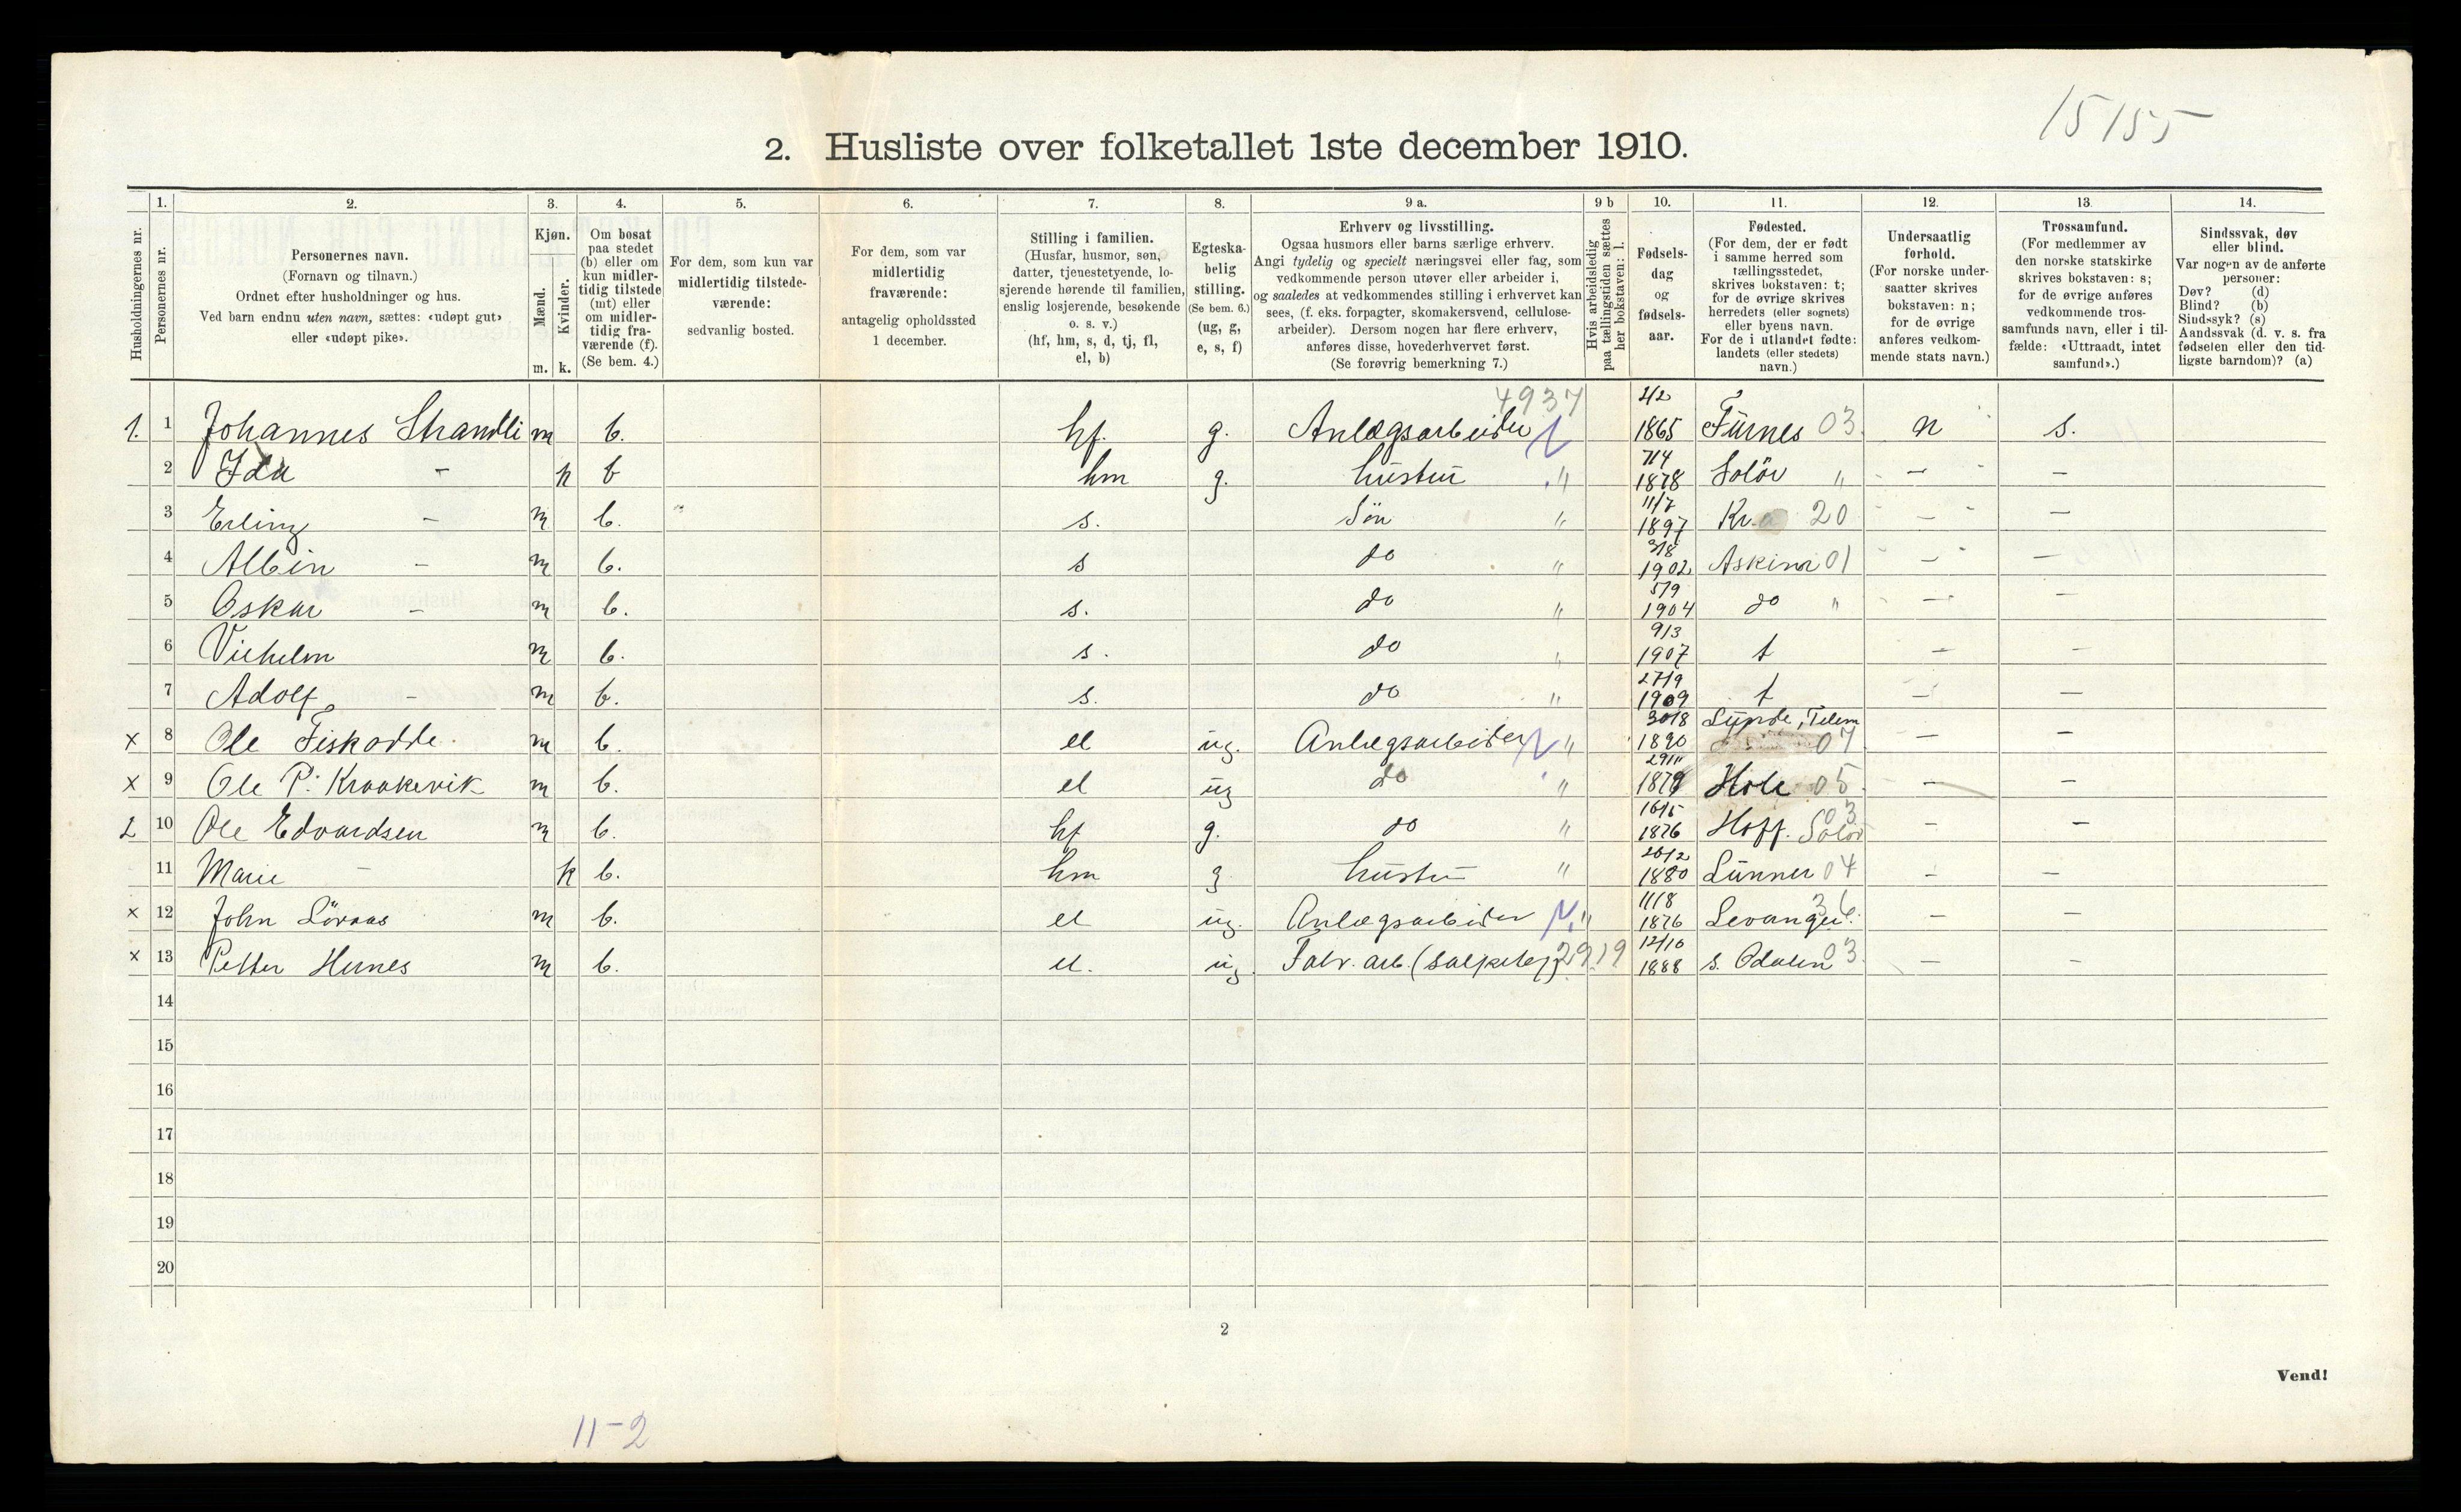 15155
2. Husliste over folketallet 1ste december 1910.
Husholdningernes nr.
1. Personernes nr.
2. Personernes navn. (Fornavn og tilnavn.) Ordnet efter husholdninger og hus. Ved barn endnu uten navn, sættes: «udøpt gut» eller «udøpt pike».
3. Kjøn. Mænd. Kvinder. m. k.
4. Om bosat paa stedet (b) eller om kun midlertidig tilstede (mt) eller om midlertidig fraværende (f). (Se bem. 4.)
5. For dem, som kun var midlertidig tilstedeværende: sedvanlig bosted.
6. For dem, som var midlertidig fraværende: antagelig opholdssted 1 december.
7. Stilling i familien. (Husfar, husmor, søn, datter, tjenestetyende, losjerende hørende til familien, enslig losjerende, besøkende o. s. v.) (hf, hm, s, d, tj, fl, el, b)
8. Egteskabelig stilling. (Se bem. 6.) (ug, g, e, s, f)
9 a. Erhverv og livsstilling. Ogsaa husmors eller barns særlige erhverv. Angi tydelig og specielt næringsvei eller fag, som vedkommende person utøver eller arbeider i, og saaledes at vedkommendes stilling i erhvervet kan sees, (f. eks. forpagter, skomakersvend, cellulosearbeider). Dersom nogen har flere erhverv, anføres disse, hovederhvervet først. (Se forøvrig bemerkning 7.)
9 b Hvis arbeidsledig paa tællingstiden sættes her bokstaven: l.
10. Fødselsdag og fødselsaar.
11. Fødested. (For dem, der er født i samme herred som tællingsstedet, skrives bokstaven: t; for de øvrige skrives herredets (eller sognets) eller byens navn. For de i utlandet fødte: landets (eller stedets) navn.)
12. Undersaatlig forhold. (For norske undersaatter skrives bokstaven: n; for de øvrige anføres vedkommende stats navn.)
13. Trossamfund. (For medlemmer av den norske statskirke skrives bokstaven: s; for de øvrige anføres vedkommende trossamfunds navn, eller i tilfælde: «Uttraadt, intet samfund».)
14. Sindssvak, døv eller blind. Var nogen av de anførte personer: Døv? (d) Blind? (b) Sindssyk? (s) Aandssvak (d. v. s. fra fødselen eller den tidligste barndom)? (a)
4937
1. 1 Johannes Strandli m b. hf. g. Anlægsarbeider 2/2 1865 Furnes 03 n s.
2 Ida - k b hm g. hustru " 7/4 1878 Solör " - -
3 Erling - m b. s. Sön " 11/7 1897 Kr.a 20 - -
4 Albin - m b. s do " 3/8 1902 Askim 01 - -
5 Oskar - m b. s. do " 5/9 1904 do " - -
6 Vilhelm m b. s. do " 9/3 1907 t - -
7 Adolf - m b. s. do " 27/9 1909 t - -
x 8 Ole Fiskodde. m b. el ug. Anlægsarbeider " 30/8 1890 Lunde, Telem 07 - -
x 9 Ole P. Kraakevik m b. el ug do " 29/11 1879 Hole 05 - -
2 10 Ole Edvardsen m b. hf g. do " 16/5 1876 Hoff. Solör 03 - -
11 Marie - k b. hm g hustru " 20/2 1880 Lunner 04 - -
x 12 John Löraas m b. el ug. Anlægsarbeider " 11/8 1876 Levanger. 36 - -
x 13 Petter Hernes m b. el. ug Fabr. arb. (salpeter) 2919 12/10 1888 s. Odalen 03 - -
14
15
16
17
18
19
20
2
Vend!
11-2